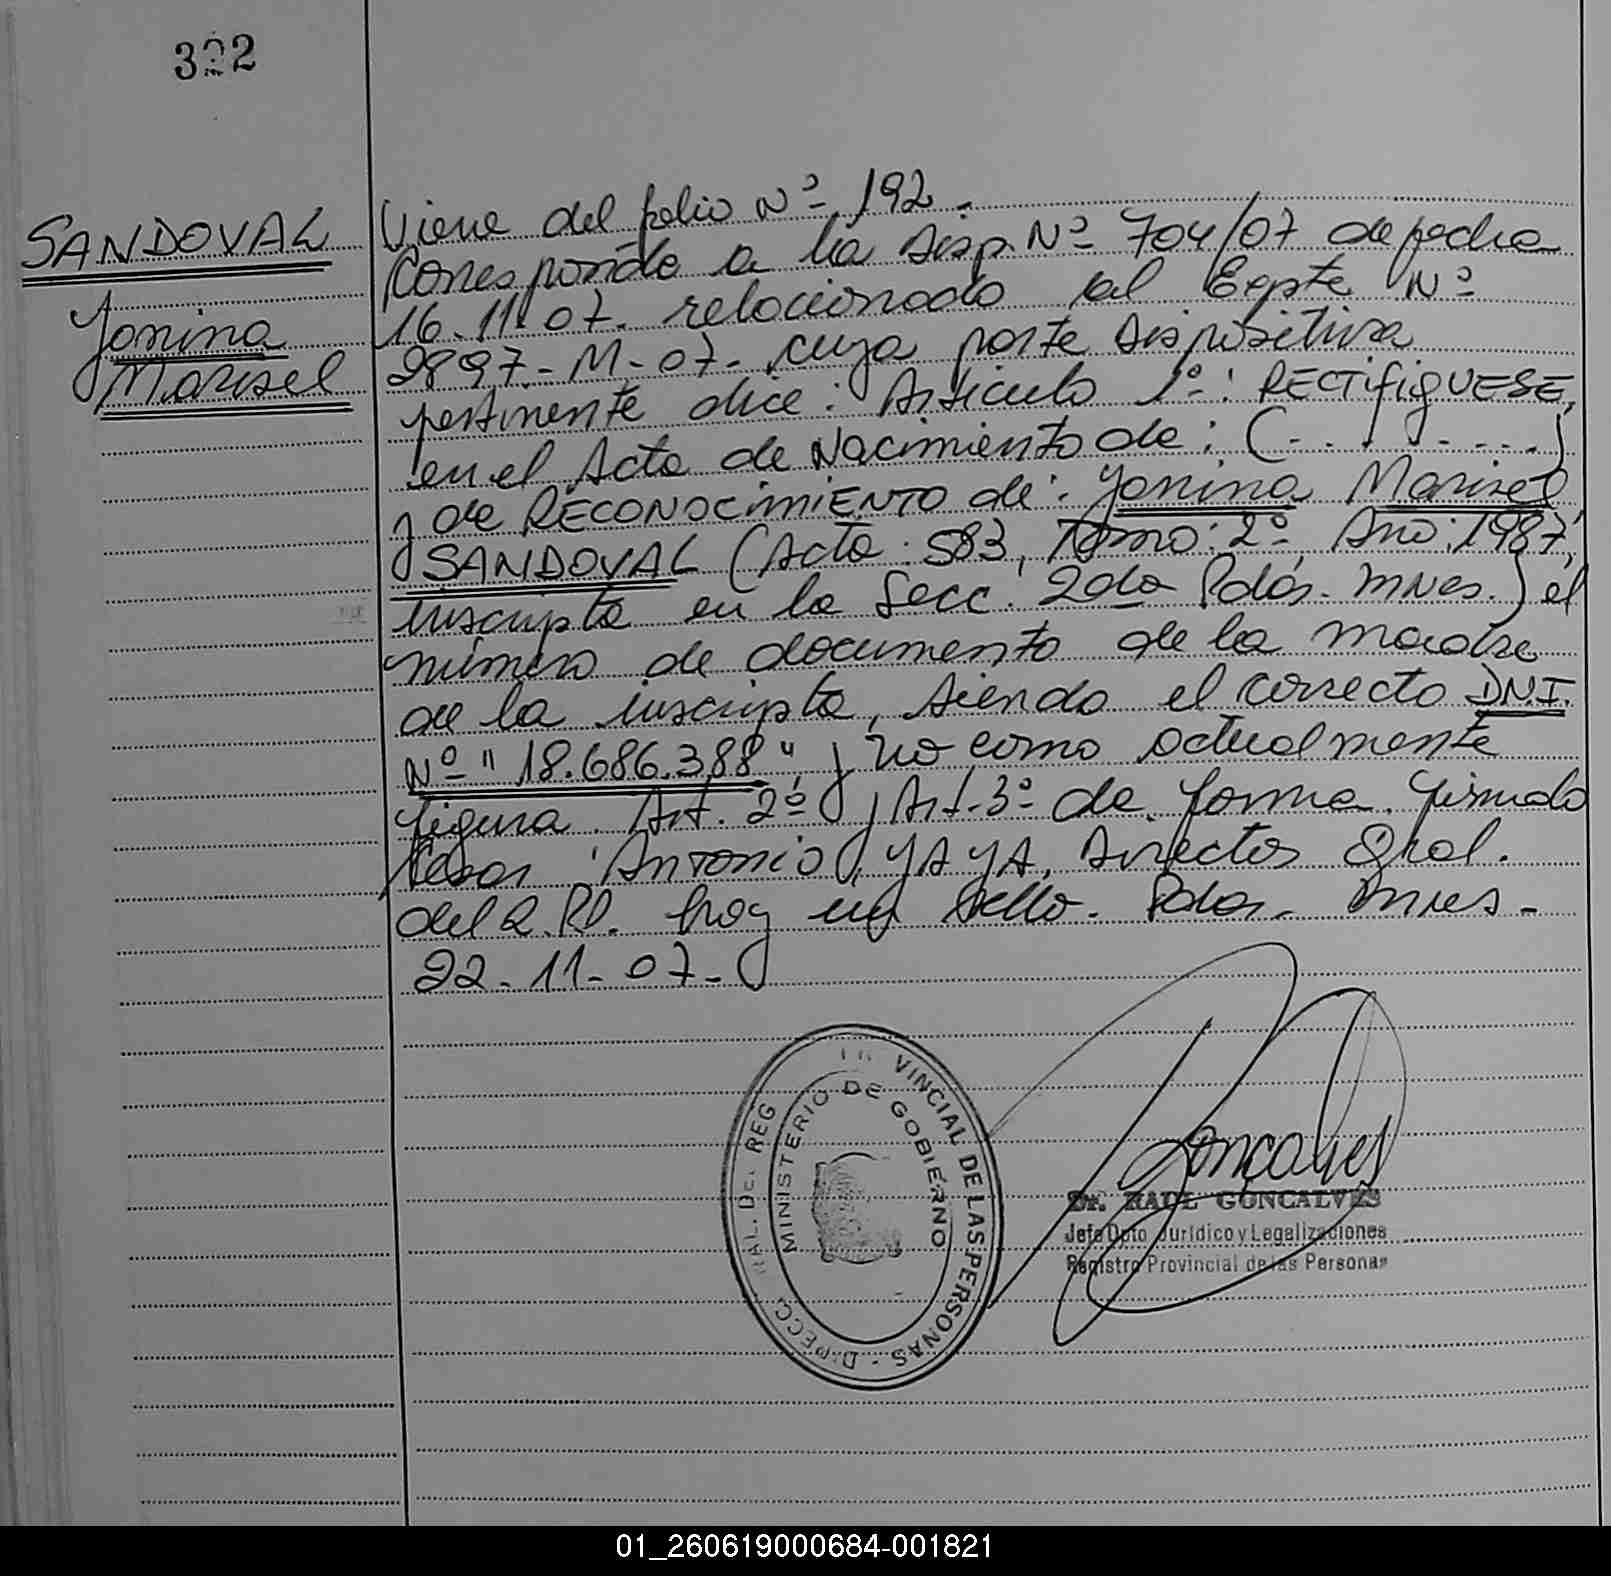 322
SANDOVAL
Yonina
Marisel
Viene del folio Nº 192.
Corresponde a la Disp. Nº 704/07 de fecha
16.11.07. relacionado al Expte Nº
2897-M-07-, cuya parte dispositiva
pertinente dice: Artículo 1º: RECTIFIQUESE,
en el Acta de Nacimiento de: (- - - - - - -)
y de RECONOCIMIENTO de: Yonina Marisel
SANDOVAL (Acta: 583, Tomo: 2º, Año: 1987,
inscripta en la Secc. 2da Pdas. Mnes.) el
número de documento de la madre
de la inscripta, siendo el correcto D.N.I.
Nº "18.686.388", y no como actualmente
figura. Art. 2º y Art. 3º de forma. Firmado
Cesar Antonio YAYA, Director Gral.
del R.P. hay un sello. Pdas. Mnes-
22-11-07-
DIRECC. RAL. DEL REG VINCIAL DE LAS PERSONAS -
MINISTERIO DE GOBIERNO
Goncalves
Dr. RAUL GONCALVES
Jefe Dpto Jurídico y Legalizaciones
Registro Provincial de las Personas
01_260619000684-001821